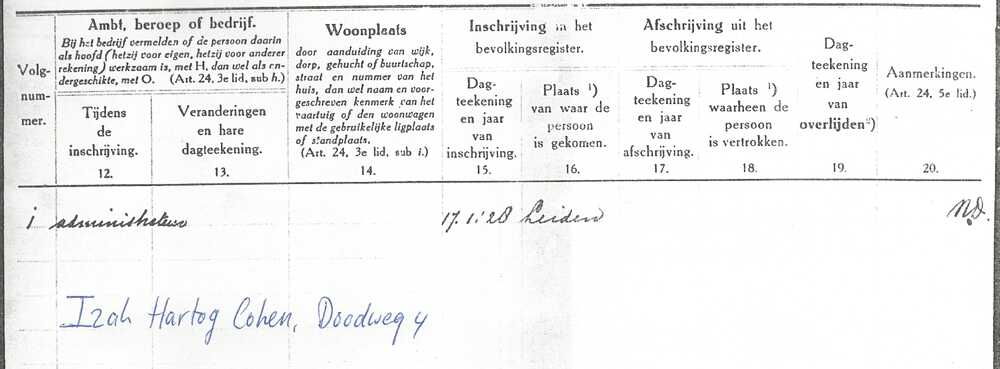 Volg-
num-
mer.
Ambt, beroep of bedrijf.
Bij het bedrijf vermelden of de persoon daarin
als hoofd (hetzij voor eigen, hetzij voor anderer
rekening) werkzaam is, met H, dan wel als on-
dergeschikte, met O. (Art. 24, 3e lid, sub h.)
Tijdens
de
inschrijving.
12.
Veranderingen
en hare
dagteekening.
13.
Woonplaats
door aanduiding van wijk,
dorp, gehucht of buurtschap,
straat en nummer van het
huis, dan wel naam en voor-
geschreven kenmerk van het
vaartuig of den woonwagen
met de gebruikelijke ligplaats
of standplaats.
(Art. 24, 3e lid, sub i.)
14.
Inschrijving in het
bevolkingsregister.
Dag-
teekening
en jaar
van
inschrijving.
15.
Plaats ¹)
van waar de
persoon
is gekomen.
16.
Afschrijving uit het
bevolkingsregister.
Dag-
teekening
en jaar
van
afschrijving.
17.
Plaats ¹)
waarheen de
persoon
is vertrokken.
18.
Dag-
teekening
en jaar
van
overlijden²)
19.
Aanmerkingen.
(Art. 24, 5e lid.)
20.
1 administrateur 17.1.'28 Leiden N.D.
Izak Hartog Cohen, Doodweg 4